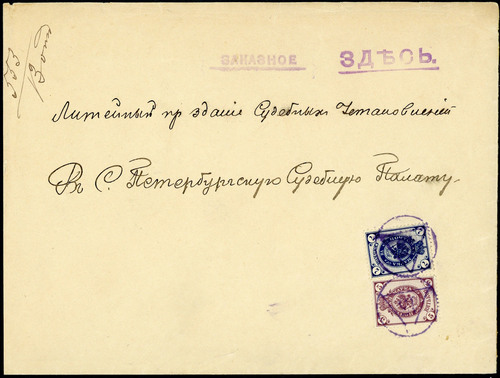 ЗАКАЗНОЕ
ЗДѢСЬ.
Литейный пр зданіе Судебныхъ Установленій
Въ С. Петербургскую Судебную Палату.
7 7
5 5